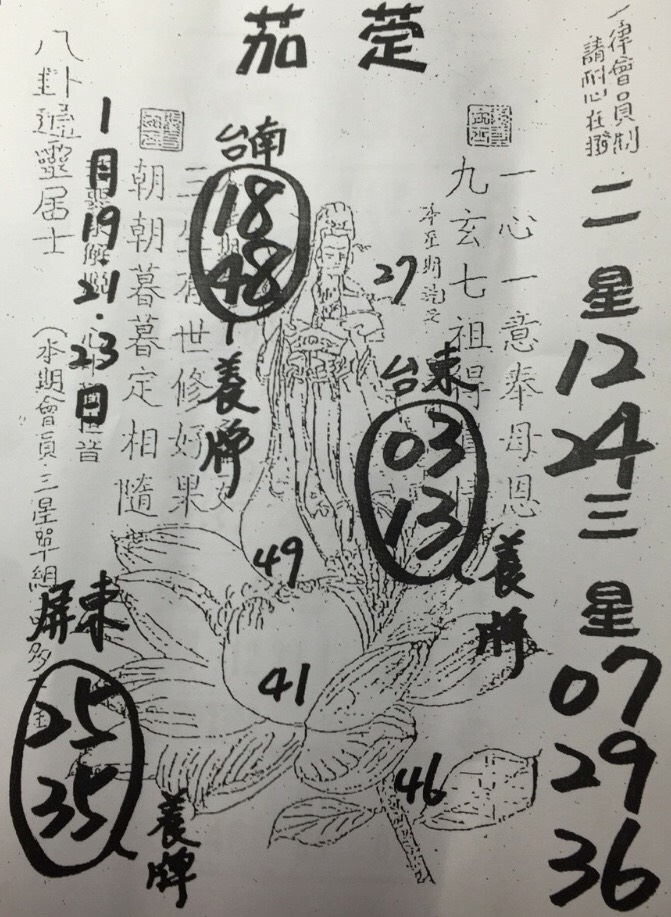 茄萣
一律會員制
請耐心在撥
二星
12
24
三星
07
29
36
一心一意奉母恩
九玄七祖得
27
台東
03
13
養牌
台南
18
48
養牌
世修好果
朝朝暮暮定相隨
1月19.21.23日
八卦
居士
(本期會員.三星單組
屏東
25
35
養牌
49
41
46